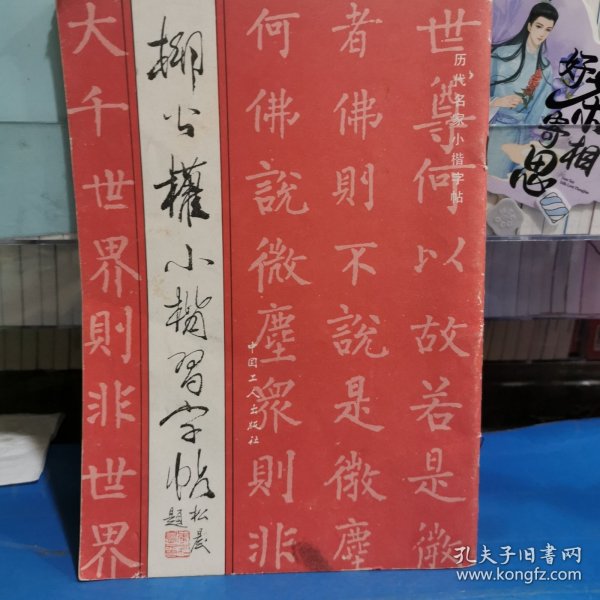 历代名家小楷字帖
世尊何以故若是微
者佛則不說是微塵
何佛說微塵眾則非
中国工人出版社
柳公權小楷習字帖
松晨
題
大千世界則非世界
好
寄
相
思
孔夫子旧书网
www.kongfz.com